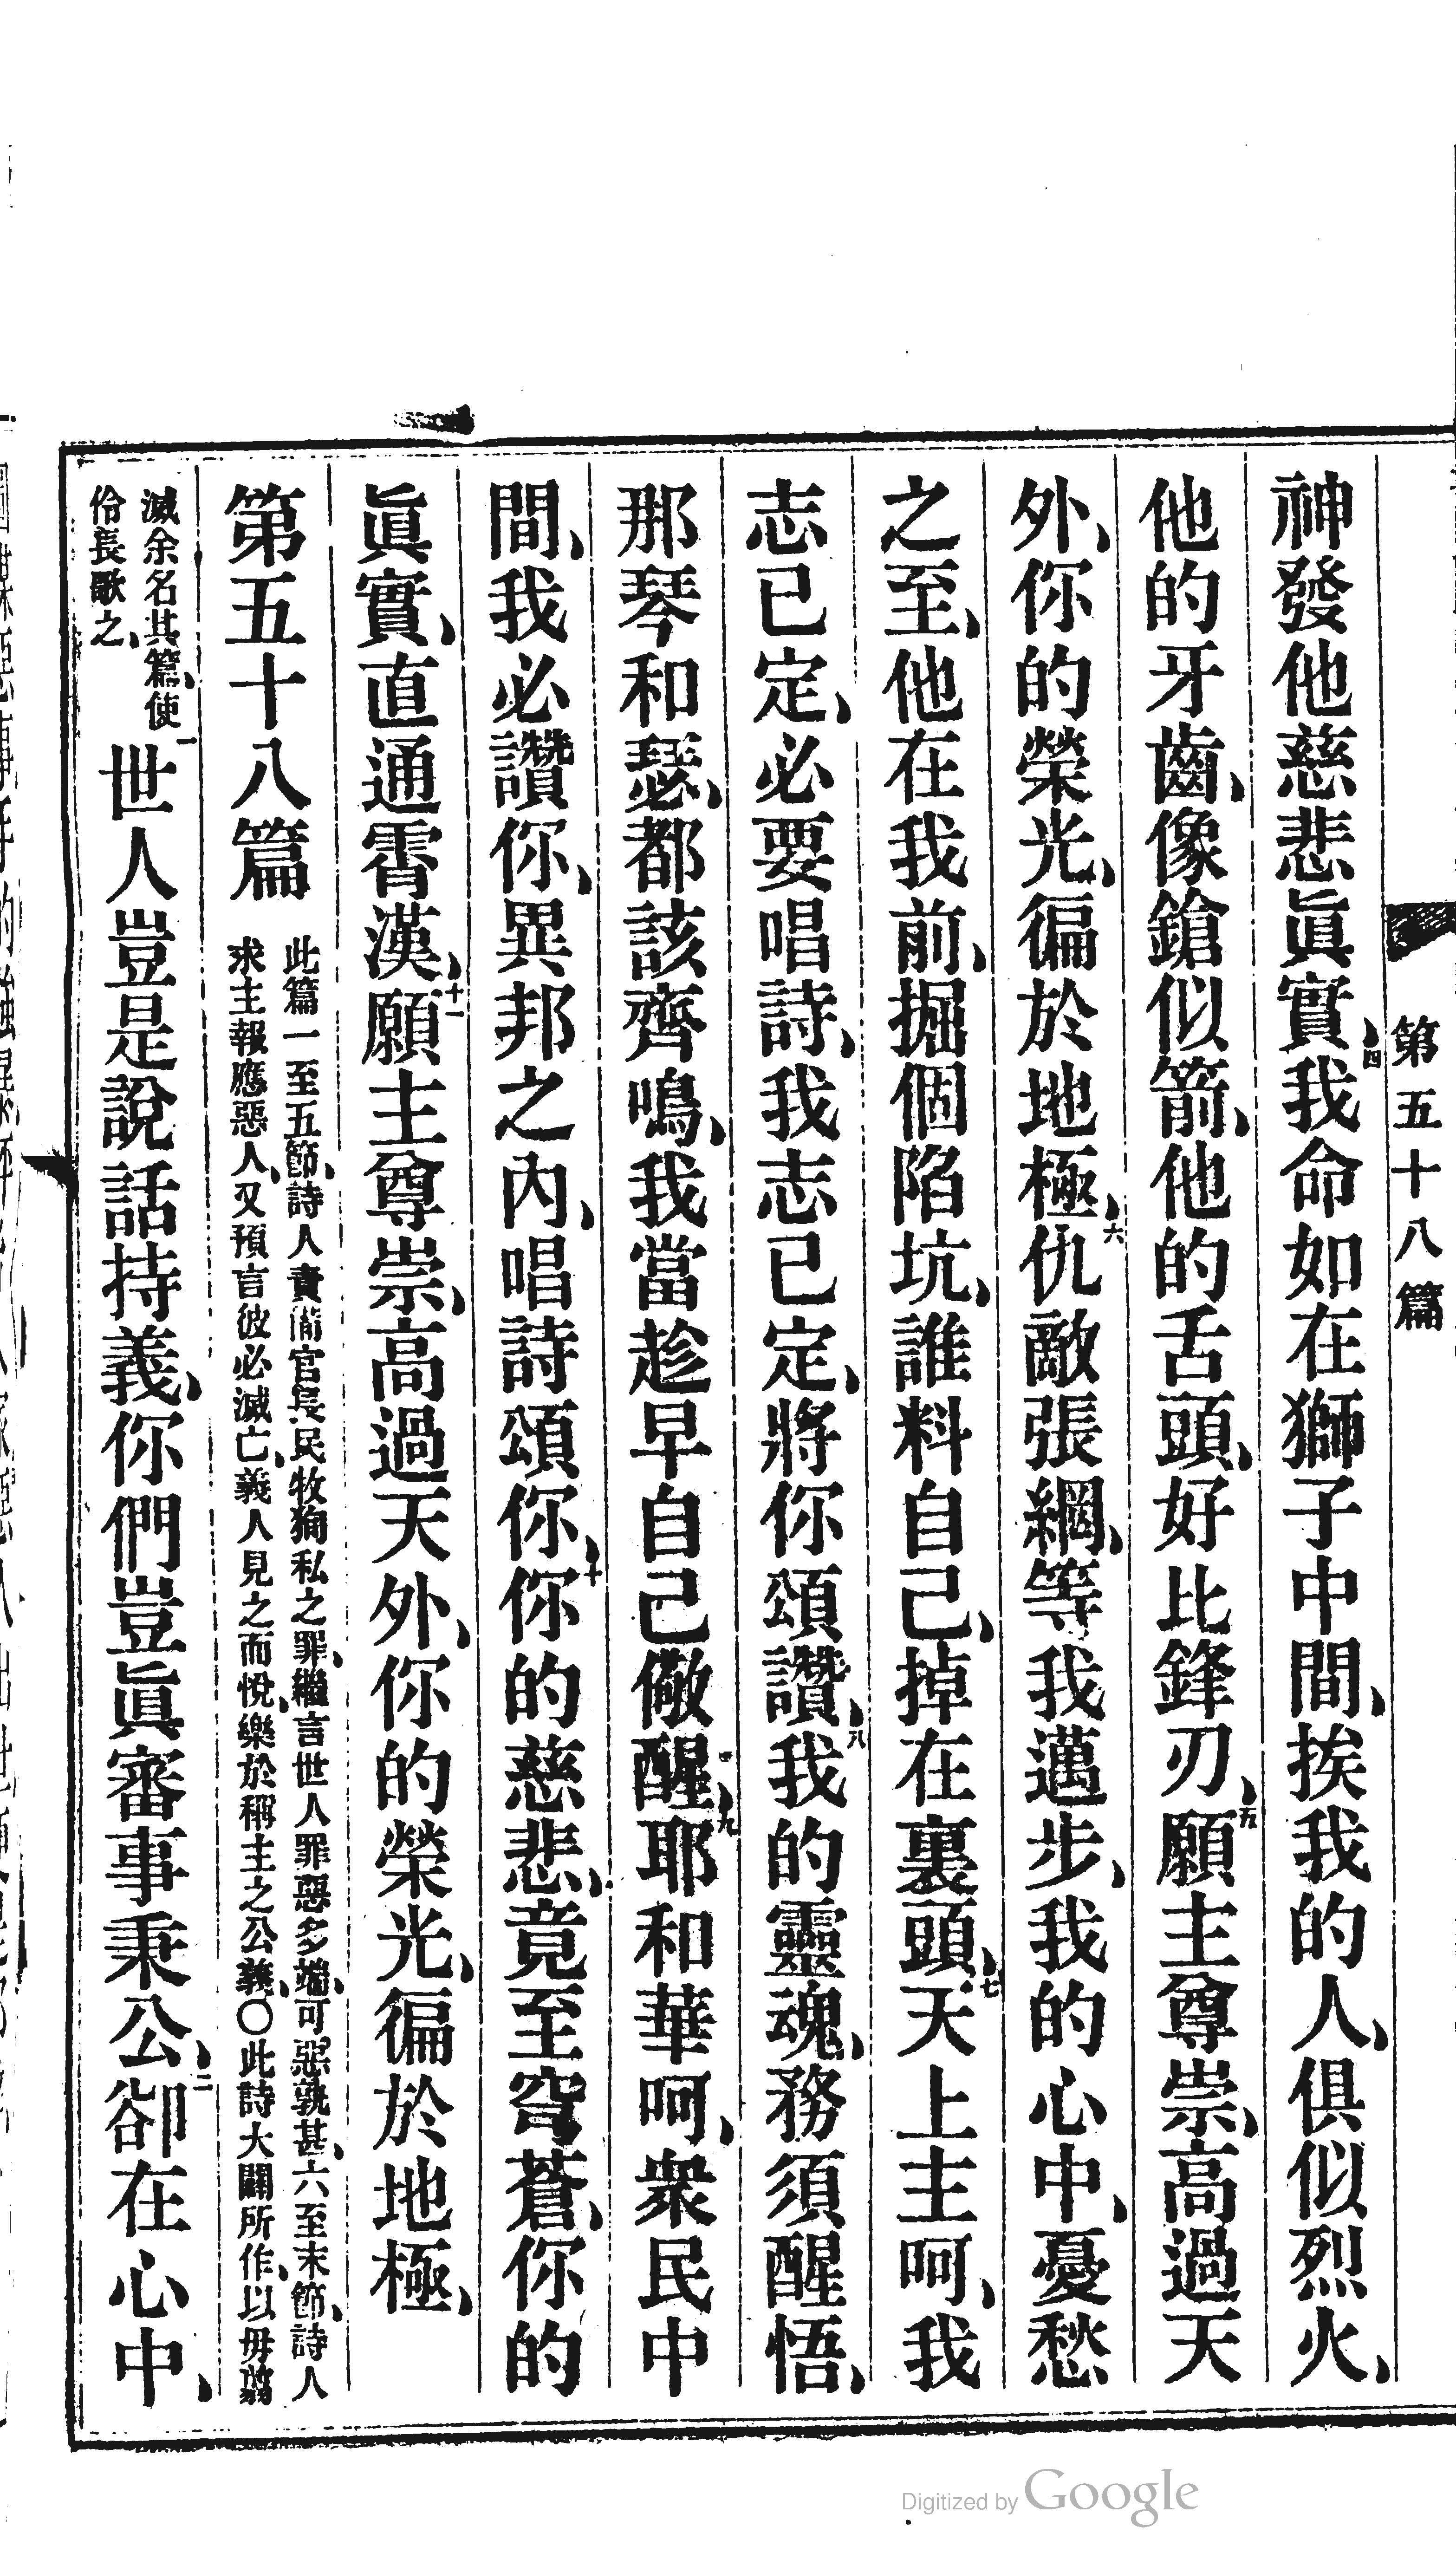 第五十八篇
神發他慈悲眞實、四我命如在獅子中間、挨我的人、俱似烈火、
他的牙齒、像鎗似箭、他的舌頭、好比鋒刃、五願主尊崇、高過天
外、你的榮光、徧於地極、六仇敵張網、等我邁步、我的心中、憂愁
之至、他在我前、掘個陷坑、誰料自己、掉在裏頭、七天上主呵、我
志已定、必要唱詩、我志已定、將你頌讚、八我的靈魂、務須醒悟、
那琴和瑟、都該齊鳴、我當趁早自己儆醒、九耶和華呵、衆民中
間、我必讚你、異邦之內、唱詩頌你、十你的慈悲、竟至穹蒼、你的
眞實、直通霄漢、十一願主尊崇、高過天外、你的榮光、徧於地極、
第五十八篇
此篇一至五節、詩人責備官長民牧狥私之罪、繼言世人罪惡多端、可惡孰甚、六至末節、詩人
求主報應惡人、又預言彼必滅亡、義人見之而悅、樂於稱主之公義、〇此詩大闢所作、以毋翦
滅余名其篇、使
伶長歌之、
一世人豈是說話持義、你們豈眞審事秉公、二卻在心中、
Digitized by Google